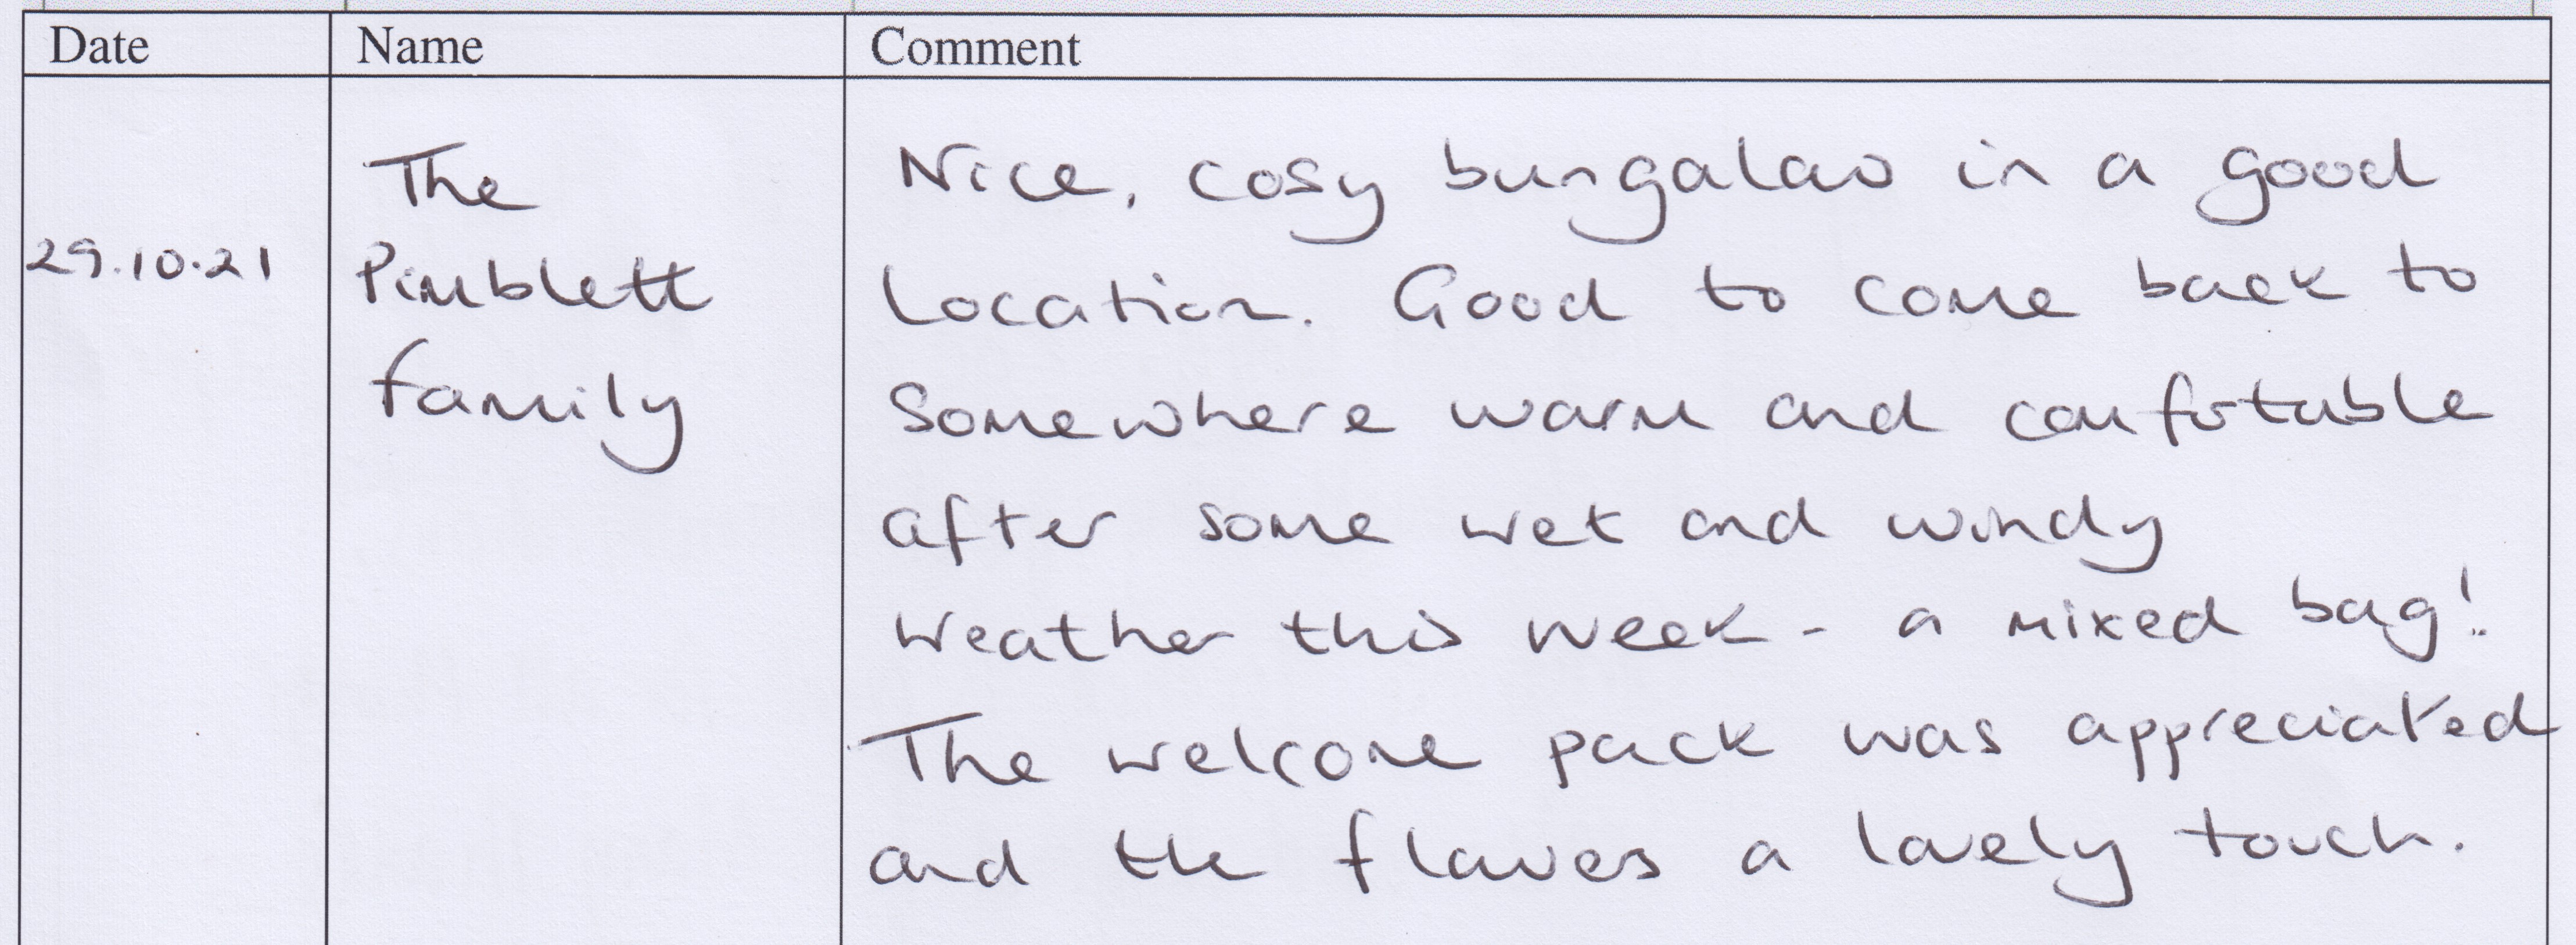 Date Name Comment
The Nice, cosy bungalow in a good
29.10.21 Pimblett location. Good to come back to
family somewhere warm and comfortable
after some wet and windy
weather this week - a mixed bag!
The welcome pack was appreciated
and the flowers a lovely touch.